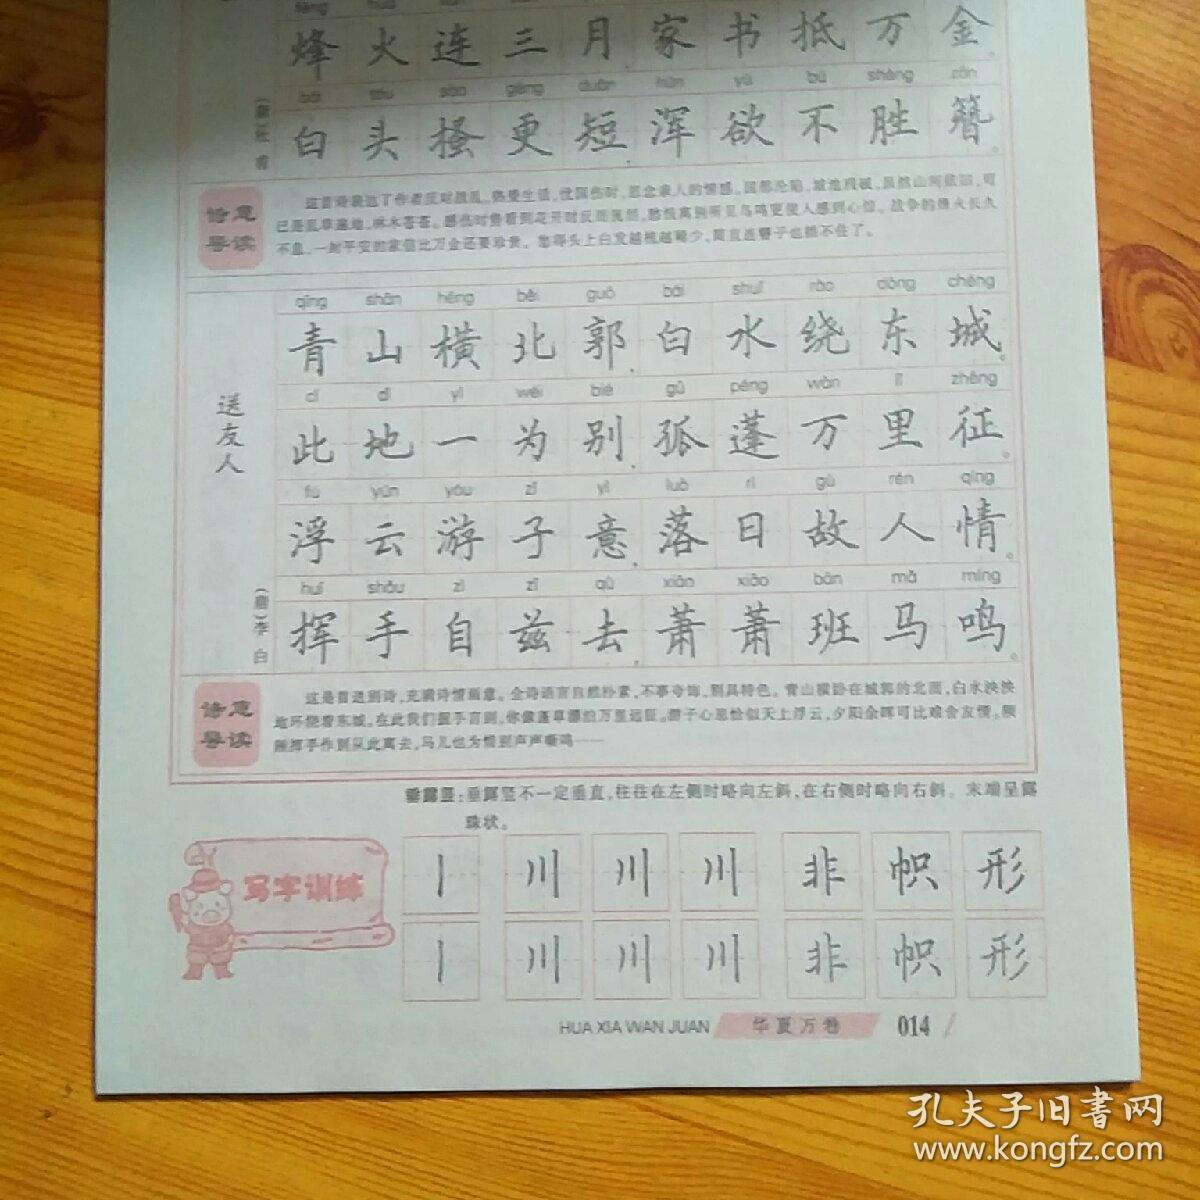 fēng huǒ
烽火连三月家书抵万金。
bái tóu sāo gèng duǎn hún yù bú shèng zān
白头搔更短,浑欲不胜簪。
诗意导读
这首诗表达了作者反对战乱、热爱生活、忧国伤时、思念亲人的情感。国都沦陷,城池残破,虽然山河依旧,可
已是乱草遍地,林木苍苍。感伤时势看到花开时反而
不息,一封平安的家信比万金还要珍贵。愁得头上白发越梳越稀少,简直连簪子也插不住了。
qīng shān héng běi guō bái shuǐ rào dōng chéng
青山横北郭,白水绕东城。
cǐ dì yì wéi bié gū péng wàn lǐ zhēng
此地一为别,孤蓬万里征。
fú yún yóu zǐ yì luò rì gù rén qíng
浮云游子意,落日故人情。
huī shǒu zì zī qù xiāo xiāo bān mǎ míng
挥手自兹去,萧萧班马鸣。
送友人
(唐)李白
诗意导读
这是首送别诗,充满诗情画意。全诗语言自然朴素,不事夸饰,别具特色。青山横卧在城郭的北面,白水泱泱
地环绕着东城。在此我们握手言别,你像蓬草漂泊万里远征。游子心思恰似天上浮云,夕阳余晖可比难舍友情。频
频挥手作别从此离去,马儿也为惜别声声嘶鸣……
垂露竖:垂露竖不一定垂直,往往在左侧时略向左斜,在右侧时略向右斜。末端呈露
珠状。
写字训练
丨 川 川 川 非 帜 形
丨 川 川 川 非 帜 形
HUA XIA WAN JUAN 华夏万卷 014
孔夫子旧书网
www.kongfz.com